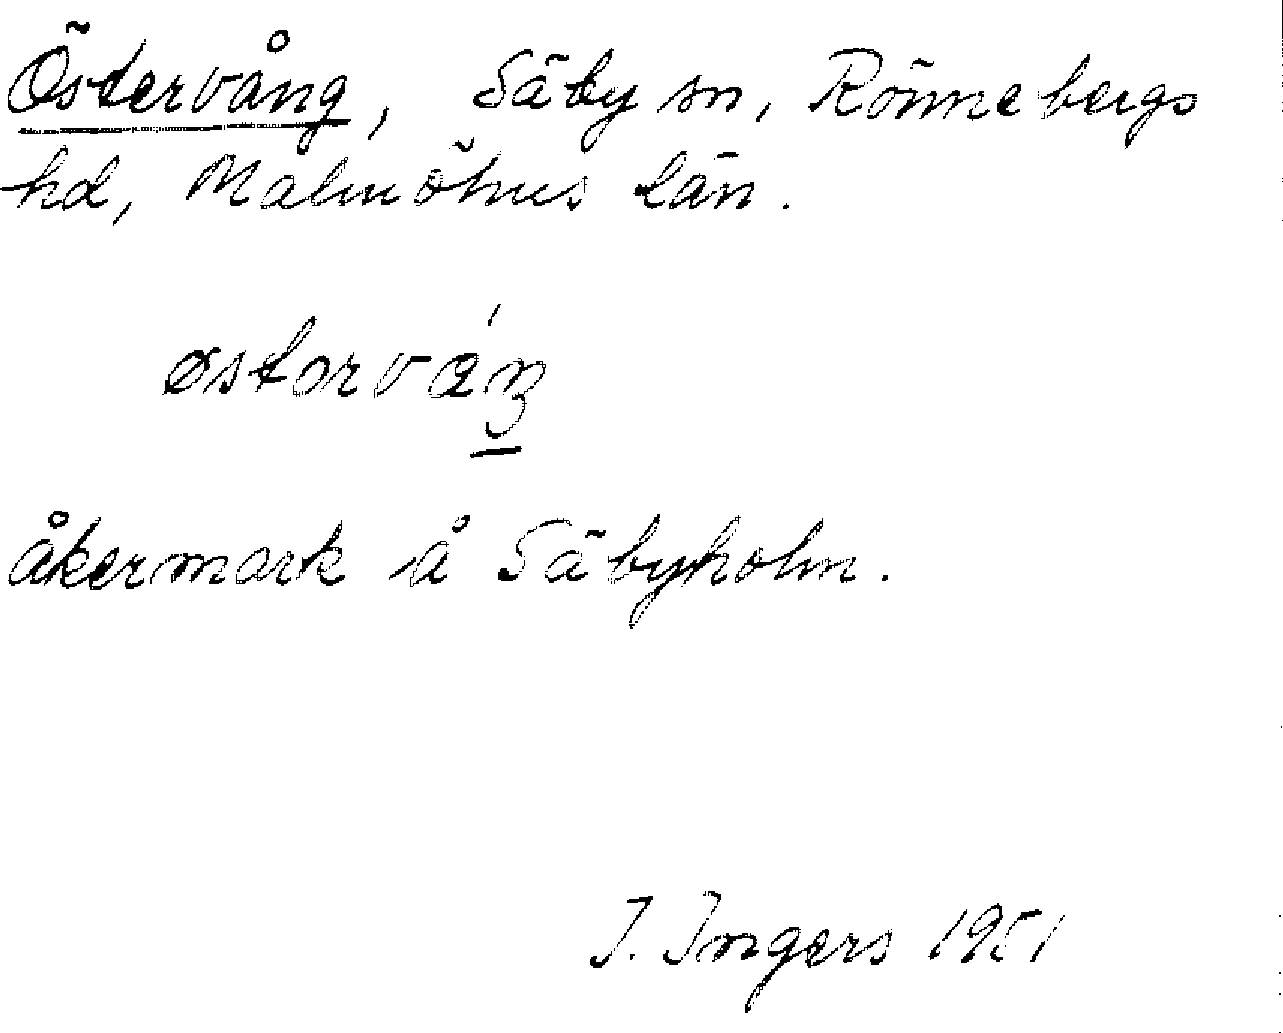 Östervång, Säby sn, Rönnebergs
hd, Malmöhus län.
østorváŋ
åkermark å Säbyholm.
I. Ingers 1951